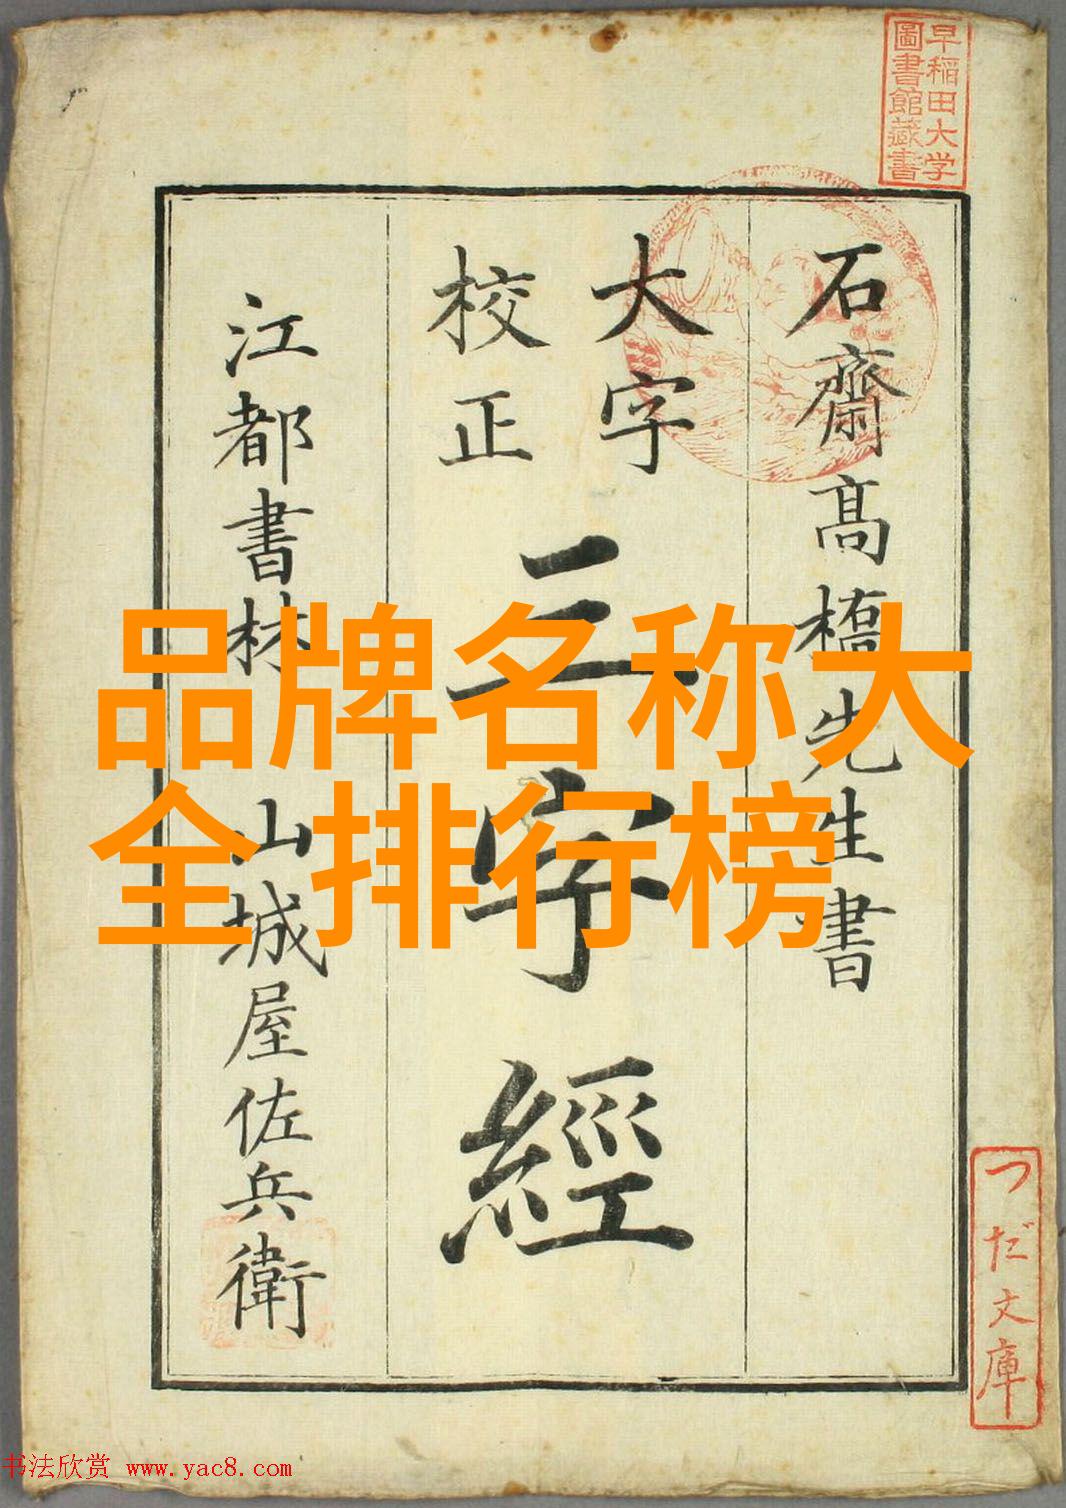 早稲田大学
圖書館藏書
石齋髙橋先生書
大字
校正
三字經
江都書林 山城屋佐兵衛
品牌名称大
全排行榜
つだ文庫
书法欣赏 www.yac8.com